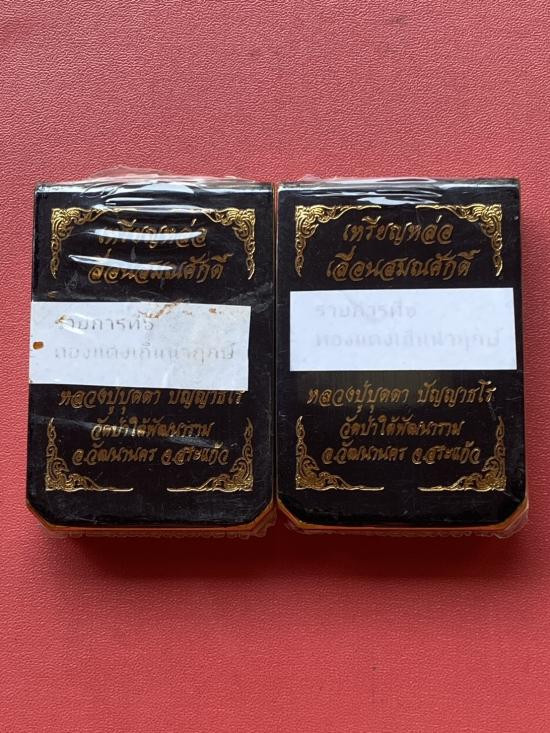 เหรียญหล่อ
เลื่อนสมณศักดิ์
รายการที่๖
ทองแดงเถื่อนนำฤกษ์
หลวงปู่บุดดา ปัญญาธโร
วัดป่าใต้พัฒนาราม
อ.วัฒนานคร จ.สระแก้ว
เหรียญหล่อ
เลื่อนสมณศักดิ์
รายการที่๖
หลวงปู่บุดดา ปัญญาธโร
วัดป่าใต้พัฒนาราม
อ.วัฒนานคร จ.สระแก้ว